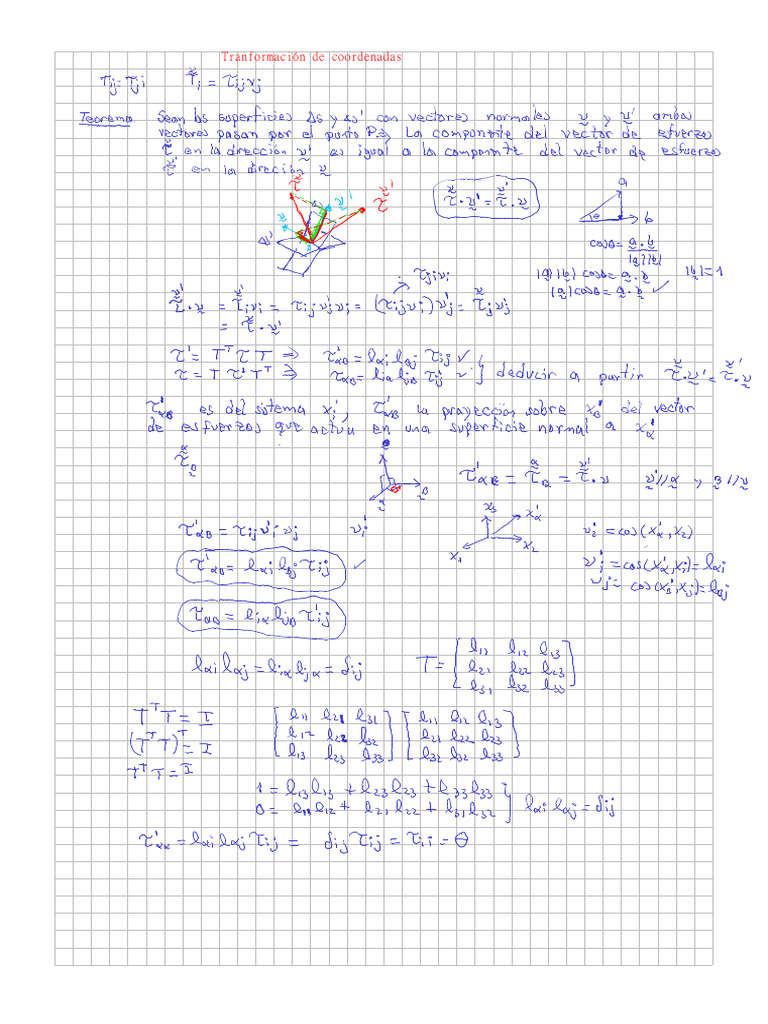 Tranformación de coordenadas
τij = τji   ν̰Ti = τij νj
Teorema Sean las superficies Δs y Δs' con vectores normales ν y ν' ambos
vectores pasan por el punto P ⇒ La componente del vector de esfuerzo
τ en la dirección ν' es igual a la componente del vector de esfuerzo
τ en la direción ν
τ · ν' = τ · ν
a
θ
b
cosθ = a · b / |a||b|
|a||b| cosθ = a · b   |b| = 1
|a| cosθ = a · b ✓
τji νi
τ · ν = Ti νi = τij ν'j νi = (τij νi) ν'j = Tj ν'j
= τ · ν'
τ' = T^T τ T ⇒ τ'αβ = lαi lβj τij ✓
τ = T τ' T^T ⇒ ταβ = liα ljβ τ'ij ✓ } deducir a partir τ · ν' = τ · ν
τ'αβ es del sistema xi', τ'αβ la proyección sobre xβ' del vector
de esfuerzos que actua en una superficie normal a xα'
τ'αβ = τβ = τ · ν   ν' // α y β // ν
τ'αβ = τij ν'i νj
x3 x'α x2 x1
ν'2 = cos(x'α, x2)
ν'i = cos(x'α, xi) = lαi
νj = cos(x'β, xj) = lβj
τ'αβ = lαi lβj τij ✓
ταβ = liα ljβ τ'ij
lαi lαj = liα ljα = δij   T = [ l11 l12 l13
l21 l22 l23
l31 l32 l33 ]
T^T T = I   [ l11 l21 l31   [ l11 l12 l13
(T^T T)^T = I   l12 l22 l32   l21 l22 l23
T^T T = I   l13 l23 l33 ]   l32 l32 l33 ]
1 = l13 l13 + l23 l23 + l33 l33
0 = l11 l12 + l21 l22 + l31 l32 } lαi lαj = δij
τ'αα = lαi lαj τij = δij τij = τii = θ